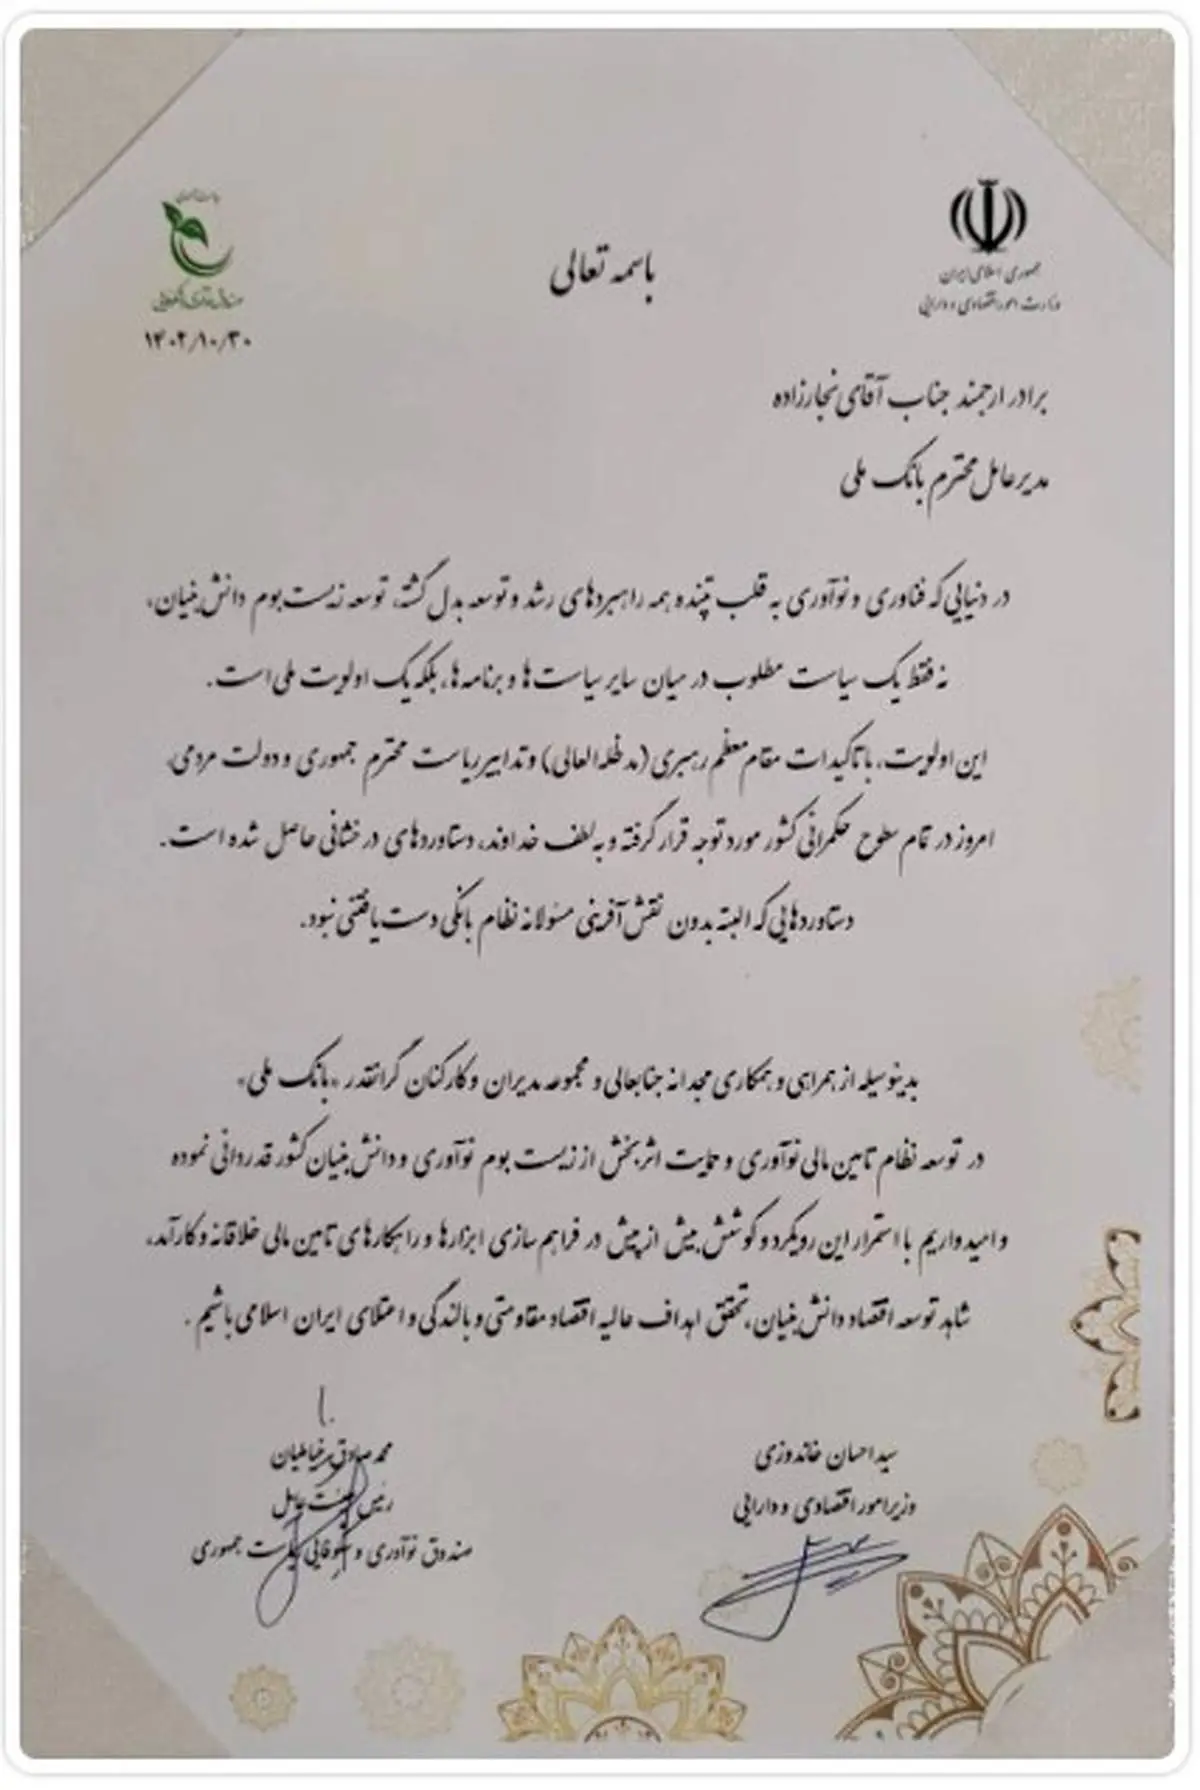 جمهوری اسلامی ایران
وزارت امور اقتصادی و دارایی
باسمه تعالی
۱۴۰۲/۱۰/۳۰
برادر ارجمند جناب آقای نجارزاده
مدیرعامل محترم بانک ملی
در دنیایی که فناوری و نوآوری به قلب تپنده همه راهبردهای رشد و توسعه بدل گشته، توسعه زیست بوم دانش بنیان،
نه فقط یک سیاست مطلوب در میان سایر سیاست ها و برنامه ها، بلکه یک اولویت ملی است.
این اولویت، با تاکیدات مقام معظم رهبری (مدظله العالی) و تدابیر ریاست محترم جمهوری و دولت مردمی،
امروز در تمام سطوح حکمرانی کشور مورد توجه قرار گرفته و به لطف خداوند، دستاوردهای درخشانی حاصل شده است.
دستاوردهایی که البته بدون نقش آفرینی مسئولانه نظام بانکی دست یافتنی نبود.
بدینوسیله از همراهی و همکاری مجدانه جنابعالی و مجموعه مدیران و کارکنان گرانقدر «بانک ملی»
در توسعه نظام تامین مالی نوآوری و حمایت اثربخش از زیست بوم نوآوری و دانش بنیان کشور قدردانی نموده
و امیدواریم با استمرار این رویکرد و کوشش بیش از پیش در فراهم سازی ابزارها و راهکارهای تامین مالی خلاقانه و کارآمد،
شاهد توسعه اقتصاد دانش بنیان، تحقق اهداف عالیه اقتصاد مقاومتی و بالندگی و اعتلای ایران اسلامی باشیم.
سید احسان خاندوزی
وزیر امور اقتصادی و دارایی
محمد صادق خیاطیان
رئیس هیئت عامل
صندوق نوآوری و شکوفایی ریاست جمهوری